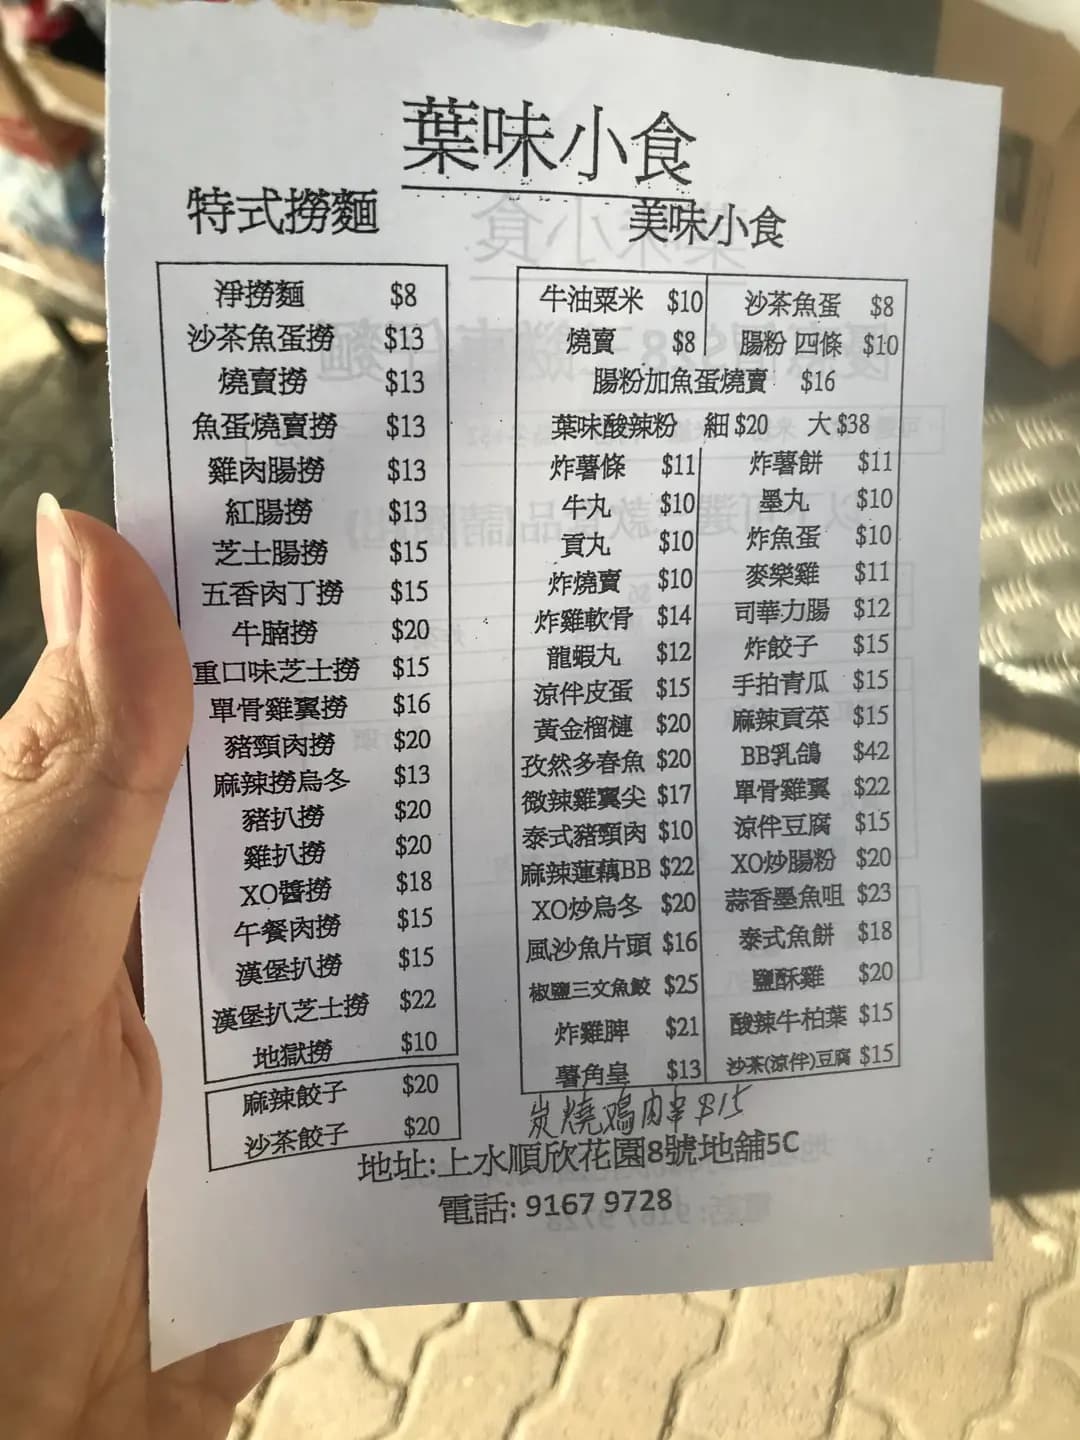 葉味小食
特式撈麵
淨撈麵 $8
沙茶魚蛋撈 $13
燒賣撈 $13
魚蛋燒賣撈 $13
雞肉腸撈 $13
紅腸撈 $13
芝士腸撈 $15
五香肉丁撈 $15
牛腩撈 $20
重口味芝士撈 $15
單骨雞翼撈 $16
豬頸肉撈 $20
麻辣撈烏冬 $13
豬扒撈 $20
雞扒撈 $20
XO醬撈 $18
午餐肉撈 $15
漢堡扒撈 $15
漢堡扒芝士撈 $22
地獄撈 $10
麻辣餃子 $20
沙茶餃子 $20
美味小食
牛油粟米 $10 沙茶魚蛋 $8
燒賣 $8 腸粉 四條 $10
腸粉加魚蛋燒賣 $16
葉味酸辣粉 細 $20 大 $38
炸薯條 $11 炸薯餅 $11
牛丸 $10 墨丸 $10
貢丸 $10 炸魚蛋 $10
炸燒賣 $10 麥樂雞 $11
炸雞軟骨 $14 司華力腸 $12
龍蝦丸 $12 炸餃子 $15
涼伴皮蛋 $15 手拍青瓜 $15
黃金榴槤 $20 麻辣貢菜 $15
孜然多春魚 $20 BB乳鴿 $42
微辣雞翼尖 $17 單骨雞翼 $22
泰式豬頸肉 $10 涼伴豆腐 $15
麻辣蓮藕BB $22 XO炒腸粉 $20
XO炒烏冬 $20 蒜香墨魚咀 $23
風沙魚片頭 $16 泰式魚餅 $18
椒鹽三文魚餃 $25 鹽酥雞 $20
炸雞脾 $21 酸辣牛柏葉 $15
薯角皇 $13 沙茶(涼伴)豆腐 $15
炭燒鸡肉串 $15
地址:上水順欣花園8號地舖5C
電話: 9167 9728